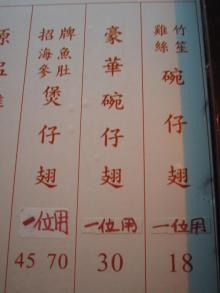 竹笙
雞絲
碗仔翅
一位用
18
豪華碗仔翅
一位用
30
招牌
海魚
參肚
煲仔翅
一位用
45 70